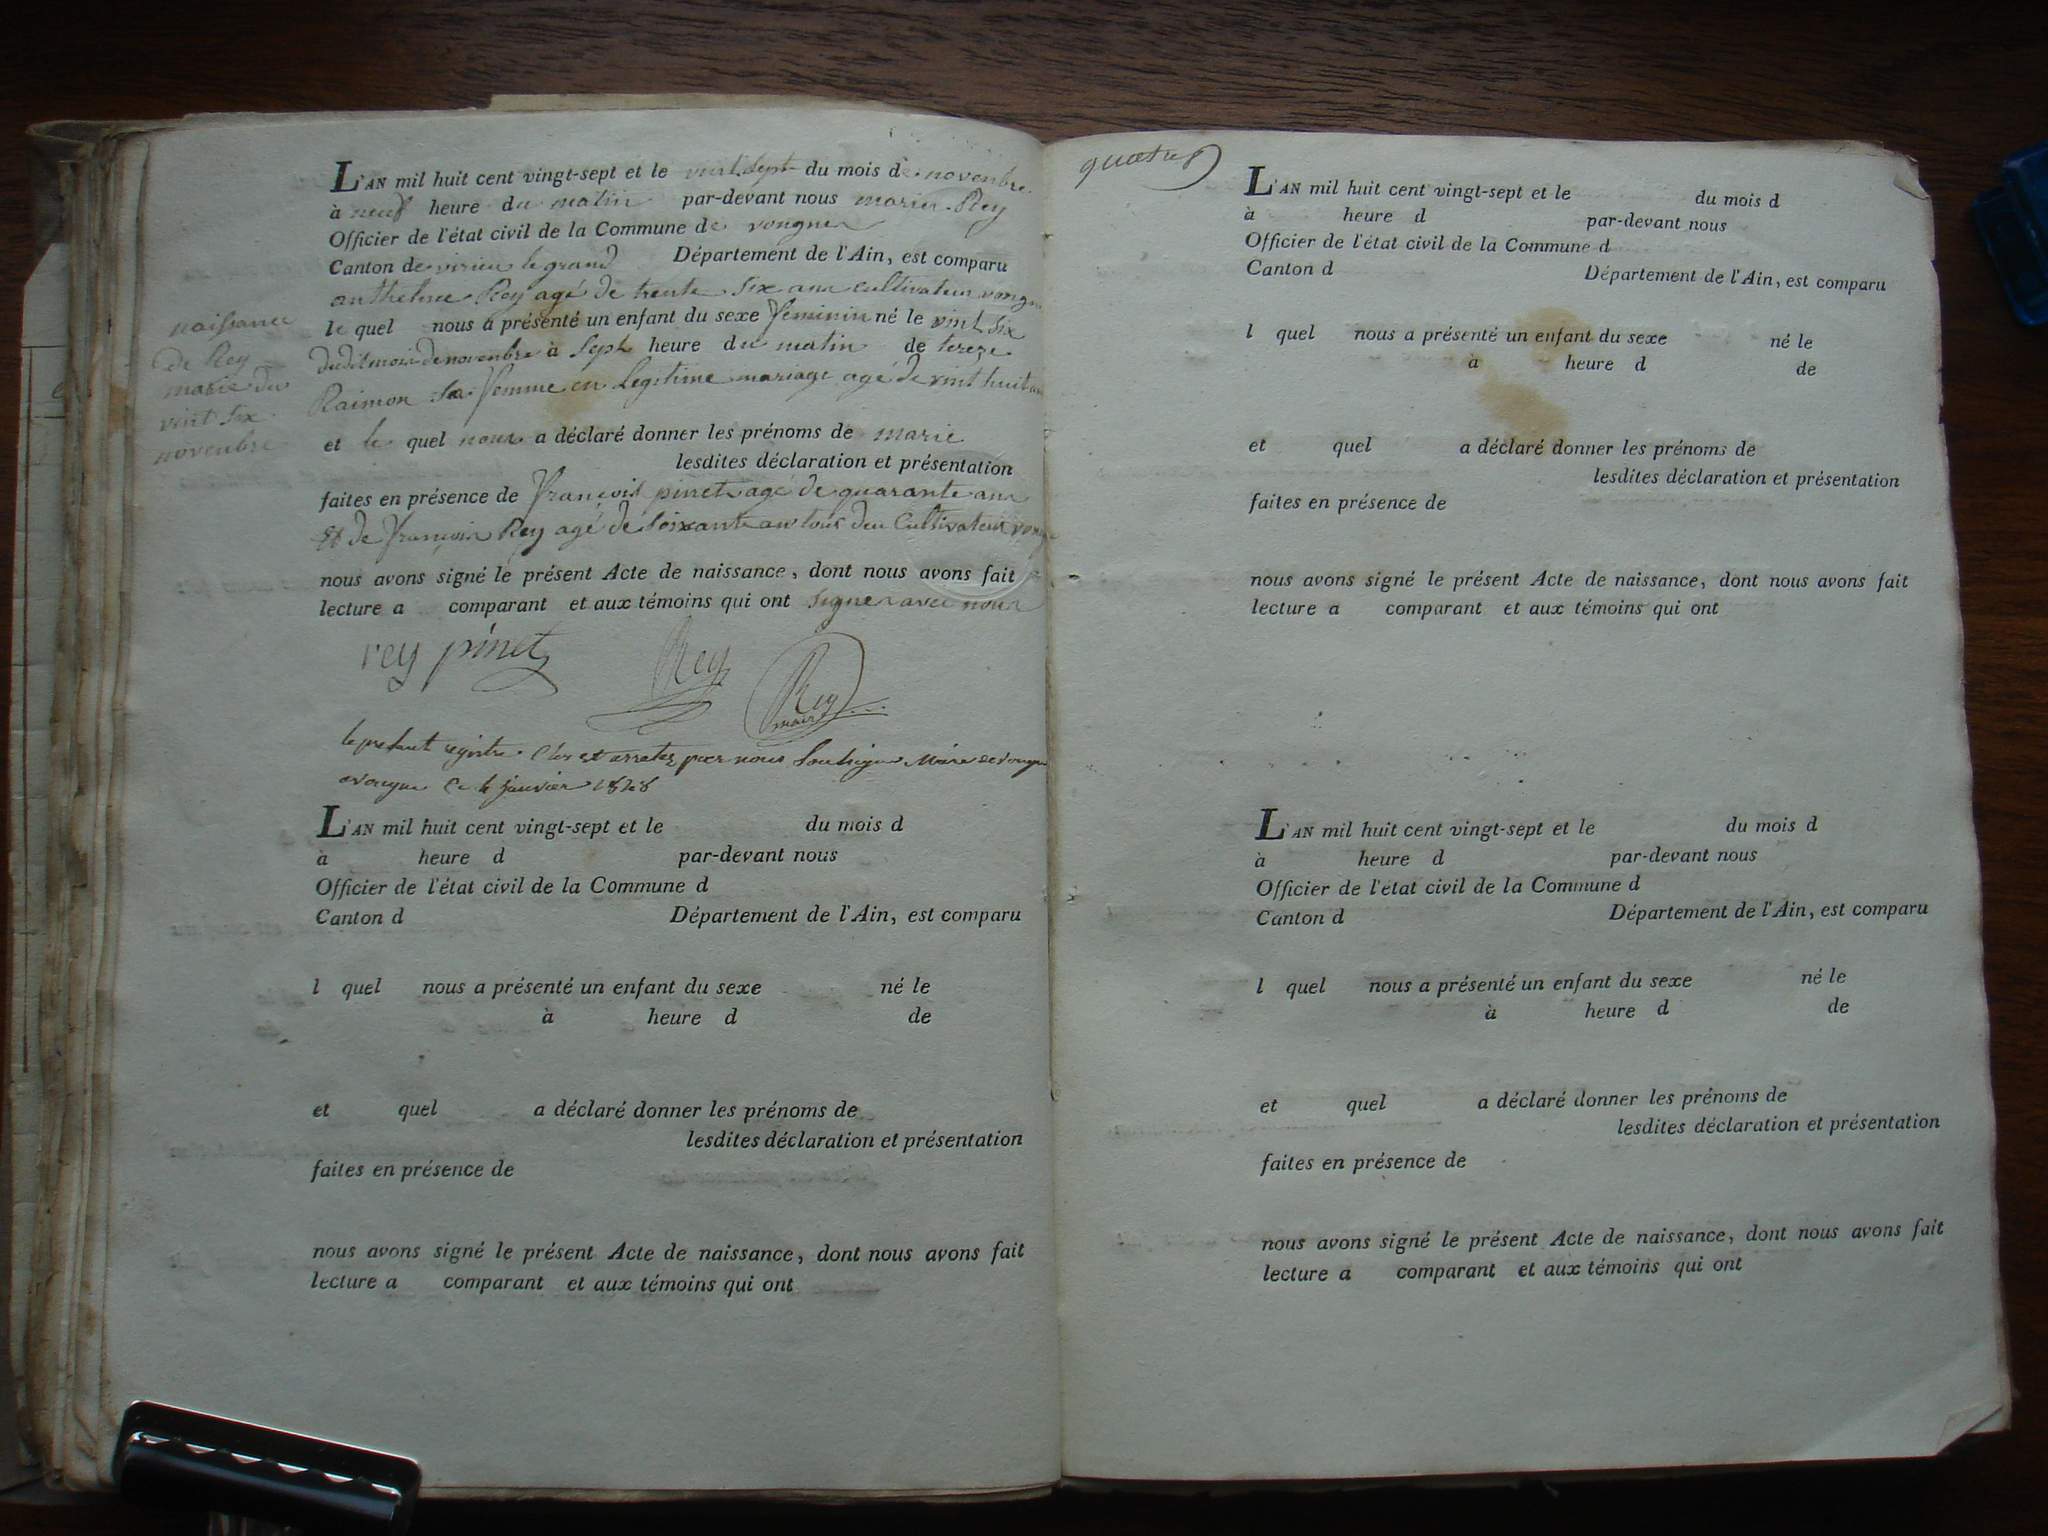 L'AN mil huit cent vingt-sept et le vint sept du mois de novenbre
à neuf heure du matin par-devant nous marin Rey
Officier de l'état civil de la Commune de vongnes
Canton de virieu le grand Département de l'Ain, est comparu
anthelme Rey agé de trente six ans cultivateur vongn
le quel nous a présenté un enfant du sexe feminin né le vint six
dudit mois de novenbre à sept heure du matin de tereze
Raimon sa femme en legitime mariage agé de vint huit an
et le quel nous a déclaré donner les prénoms de marie
lesdites déclaration et présentation
faites en présence de françois pinet agé de quarante ans
et de françois Rey agé de soixante an tous deu Cultivateur vong
nous avons signé le présent Acte de naissance, dont nous avons fait
lecture a comparant et aux témoins qui ont signer avec nous
naissance
de Rey
marie du
vint six
novenbre
rey pinet Rey Rey
maire
le present registre Clos et arretez par nous Soussigne Maire de Vongne
a vongne Ce 4 janvier 1828
L'AN mil huit cent vingt-sept et le du mois d
à heure d par-devant nous
Officier de l'état civil de la Commune d
Canton d Département de l'Ain, est comparu
l quel nous a présenté un enfant du sexe né le
à heure d de
et quel a déclaré donner les prénoms de
lesdites déclaration et présentation
faites en présence de
nous avons signé le présent Acte de naissance, dont nous avons fait
lecture a comparant et aux témoins qui ont
quatre
L'AN mil huit cent vingt-sept et le du mois d
à heure d par-devant nous
Officier de l'état civil de la Commune d
Canton d Département de l'Ain, est comparu
l quel nous a présenté un enfant du sexe né le
à heure d de
et quel a déclaré donner les prénoms de
lesdites déclaration et présentation
faites en présence de
nous avons signé le présent Acte de naissance, dont nous avons fait
lecture a comparant et aux témoins qui ont
L'AN mil huit cent vingt-sept et le du mois d
à heure d par-devant nous
Officier de l'état civil de la Commune d
Canton d Département de l'Ain, est comparu
l quel nous a présenté un enfant du sexe né le
à heure d de
et quel a déclaré donner les prénoms de
lesdites déclaration et présentation
faites en présence de
nous avons signé le présent Acte de naissance, dont nous avons fait
lecture a comparant et aux témoins qui ont